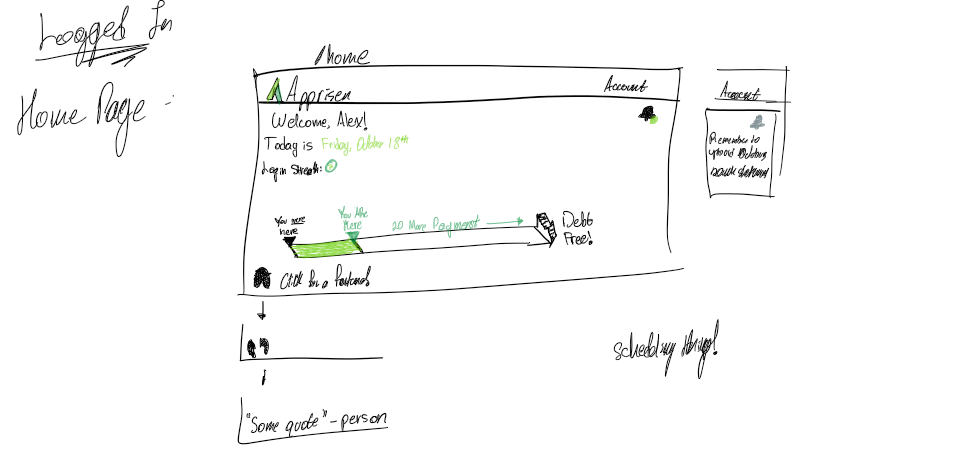 Logged In
Home Page -
/home
Apprisen
Account
Welcome, Alex!
Today is Friday, October 18th
Login Streak:
You were here
You Are Here
20 More Payments
Debt Free!
Click for a
Account
Remember to upload
"Some quote" - person